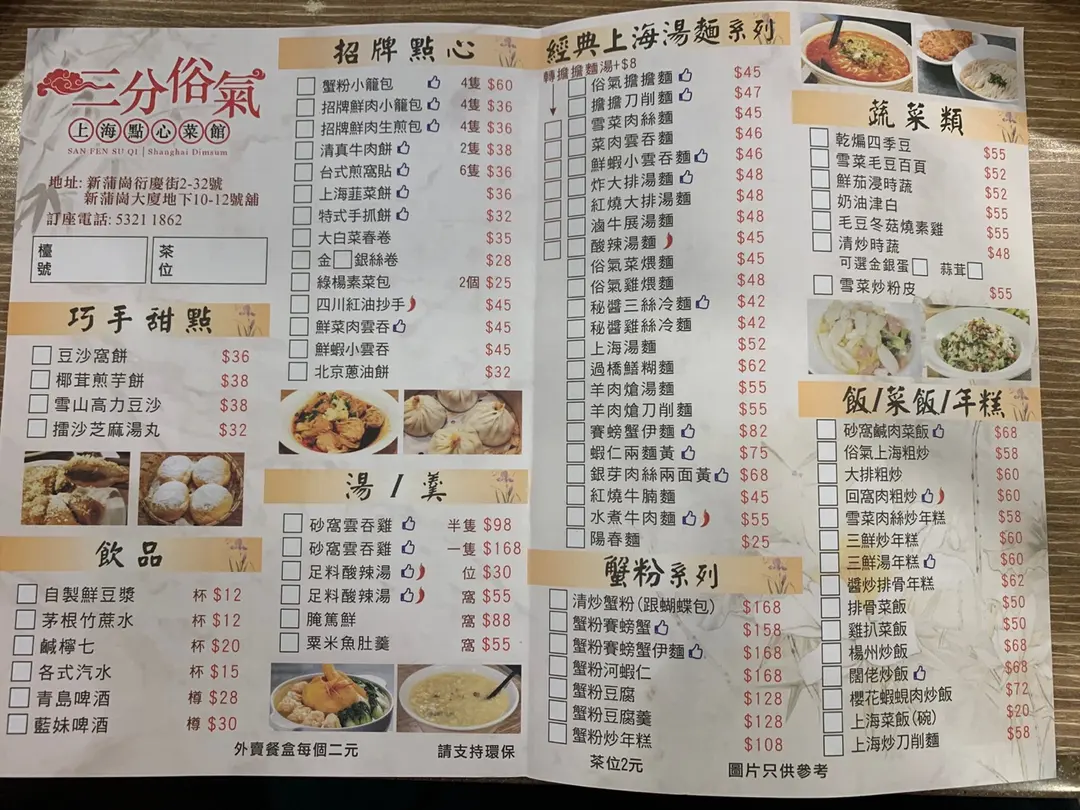 三分俗氣
上海點心菜館
SAN FEN SU QI | Shanghai Dimsum
地址: 新蒲崗衍慶街2-32號
新蒲崗大廈地下10-12號舖
訂座電話: 5321 1862
檯號
茶位
巧手甜點
豆沙窩餅 $36
椰茸煎芋餅 $38
雪山高力豆沙 $38
擂沙芝麻湯丸 $32
飲品
自製鮮豆漿 杯 $12
茅根竹蔗水 杯 $12
鹹檸七 杯 $20
各式汽水 杯 $15
青島啤酒 樽 $28
藍妹啤酒 樽 $30
招牌點心
蟹粉小籠包 4隻 $60
招牌鮮肉小籠包 4隻 $36
招牌鮮肉生煎包 4隻 $36
清真牛肉餅 2隻 $38
台式煎窩貼 6隻 $36
上海韮菜餅 $36
特式手抓餅 $32
大白菜春卷 $35
金 銀絲卷 $28
綠楊素菜包 2個 $25
四川紅油抄手 $45
鮮菜肉雲吞 $45
鮮蝦小雲吞 $45
北京蔥油餅 $32
湯/羹
砂窩雲吞雞 半隻 $98
砂窩雲吞雞 一隻 $168
足料酸辣湯 位 $30
足料酸辣湯 窩 $55
腌篤鮮 窩 $88
粟米魚肚羹 窩 $55
外賣餐盒每個二元 請支持環保
經典上海湯麵系列
轉擔擔麵湯+$8
俗氣擔擔麵 $45
擔擔刀削麵 $47
雪菜肉絲麵 $45
菜肉雲吞麵 $45
鮮蝦小雲吞麵 $46
炸大排湯麵 $48
紅燒大排湯麵 $48
滷牛展湯麵 $48
酸辣湯麵 $45
俗氣菜煨麵 $45
俗氣雞煨麵 $48
秘醬三絲冷麵 $42
秘醬雞絲冷麵 $42
上海湯麵 $52
過橋鱔糊麵 $62
羊肉熗湯麵 $55
羊肉熗刀削麵 $55
賽螃蟹伊麵 $82
蝦仁兩麵黃 $75
銀芽肉絲兩面黃 $68
紅燒牛腩麵 $45
水煮牛肉麵 $55
陽春麵 $25
蟹粉系列
清炒蟹粉(跟蝴蝶包) $168
蟹粉賽螃蟹 $158
蟹粉賽螃蟹伊麵 $168
蟹粉河蝦仁 $168
蟹粉豆腐 $128
蟹粉豆腐羹 $128
蟹粉炒年糕 $108
茶位2元 圖片只供參考
蔬菜類
乾煸四季豆 $55
雪菜毛豆百頁 $52
鮮茄浸時蔬 $52
奶油津白 $55
毛豆冬菇燒素雞 $55
清炒時蔬 $48
可選金銀蛋 蒜茸
雪菜炒粉皮 $55
飯/菜飯/年糕
砂窩鹹肉菜飯 $68
俗氣上海粗炒 $58
大排粗炒 $60
回窩肉粗炒 $60
雪菜肉絲炒年糕 $58
三鮮炒年糕 $60
三鮮湯年糕 $60
醬炒排骨年糕 $62
排骨菜飯 $50
雞扒菜飯 $50
楊州炒飯 $68
闊佬炒飯 $68
櫻花蝦蜆肉炒飯 $72
上海菜飯(碗) $20
上海炒刀削麵 $58